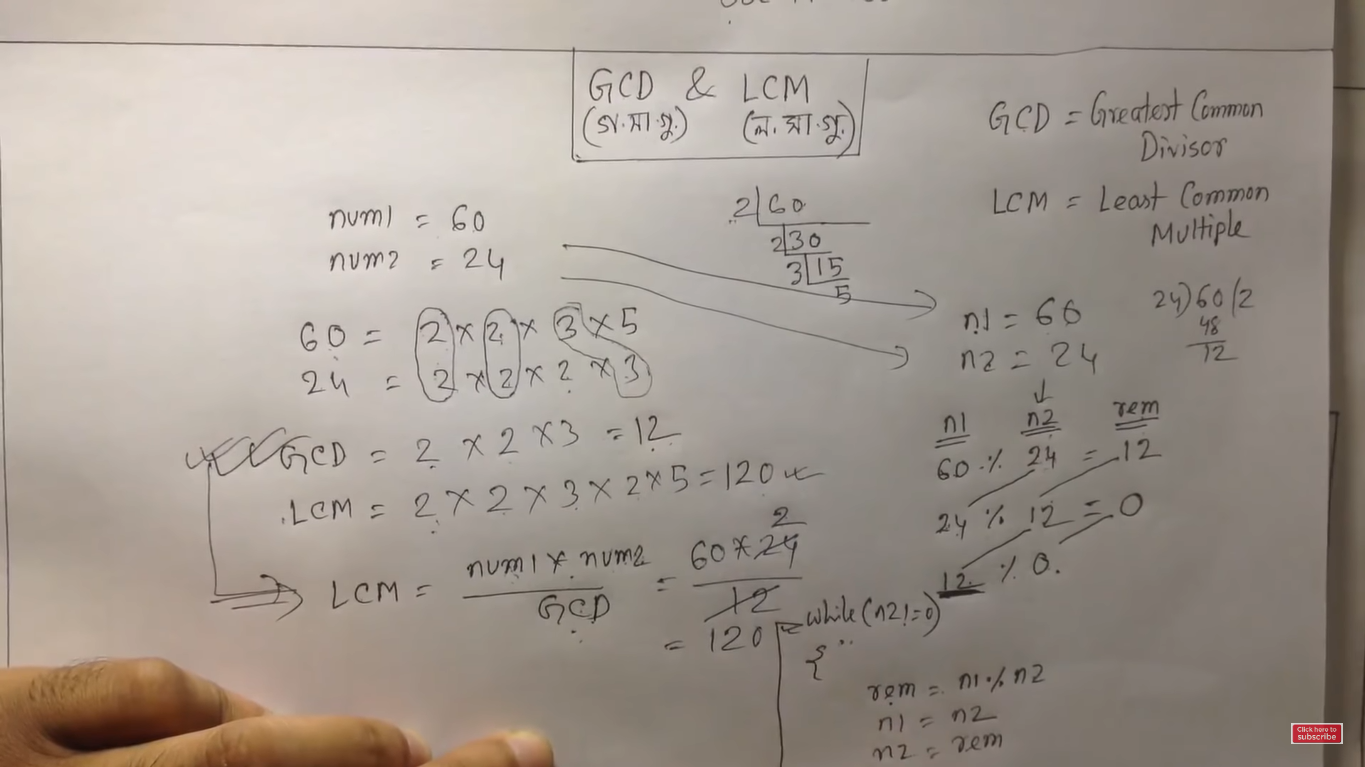 GCD & LCM
(গ.সা.গু.) (ল.সা.গু.)
GCD = Greatest Common
Divisor
LCM = Least Common
Multiple
num1 = 60
num2 = 24
2 60
2 30
3 15
5
60 = 2 × 2 × 3 × 5
24 = 2 × 2 × 2 × 3
GCD = 2 × 2 × 3 = 12
LCM = 2 × 2 × 3 × 2 × 5 = 120
LCM = num1 * num2 / GCD = 60 * 24 / 12
2
= 120
n1 = 60
n2 = 24
24)60(2
48
12
n1 n2 rem
60 % 24 = 12
24 % 12 = 0
12 % 0.
while (n2!=0)
{
rem = n1 % n2
n1 = n2
n2 = rem
Click here to
subscribe